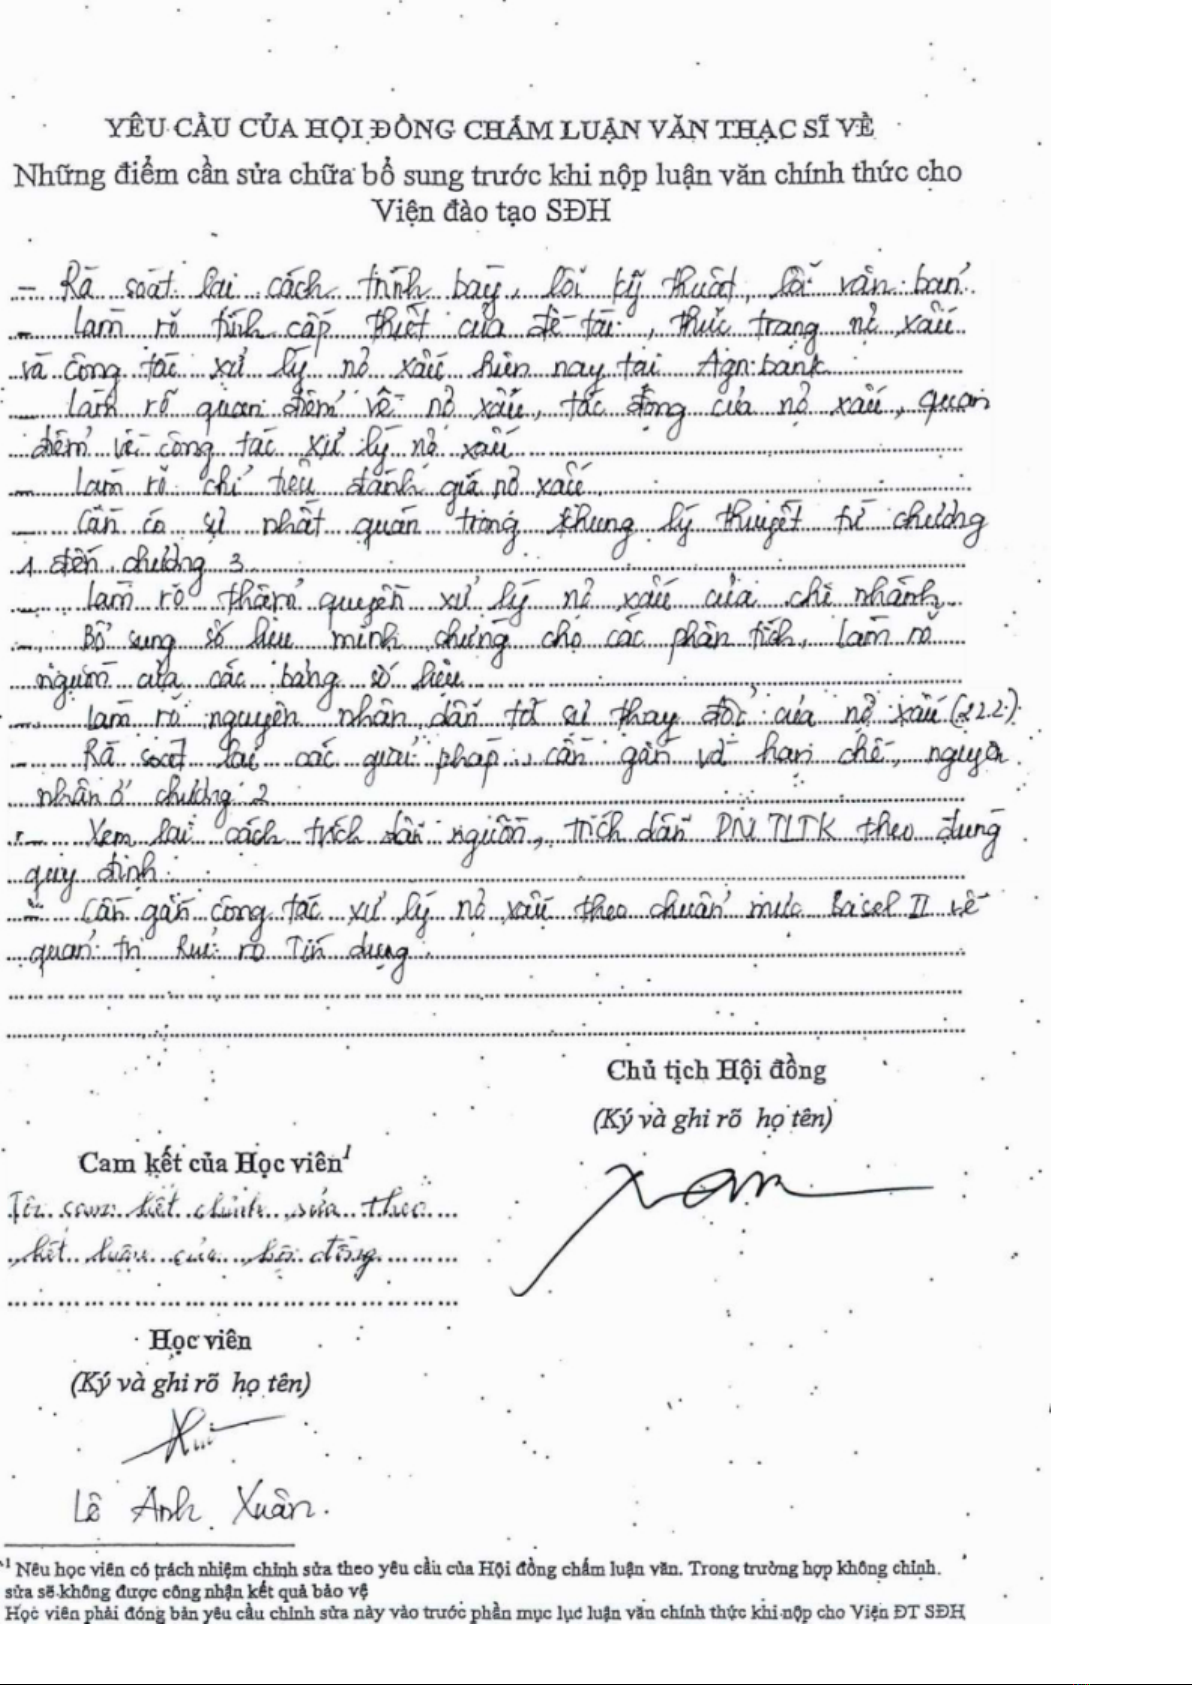 YÊU CẦU CỦA HỘI ĐỒNG CHẤM LUẬN VĂN THẠC SĨ VỀ
Những điểm cần sửa chữa bổ sung trước khi nộp luận văn chính thức cho
Viện đào tạo SĐH
- Rà soát lại cách trình bày, lỗi kỹ thuật, lỗi văn bản.
- Làm rõ tính cấp thiết của đề tài, thực trạng nợ xấu
và công tác xử lý nợ xấu hiện nay tại Agribank
- Làm rõ quan điểm về nợ xấu, tác động của nợ xấu, quan
điểm về công tác xử lý nợ xấu
- Làm rõ chỉ tiêu đánh giá nợ xấu.
- Cần có sự nhất quán trong khung lý thuyết từ chương
1 đến chương 3
- Làm rõ thẩm quyền xử lý nợ xấu của chi nhánh
- Bổ sung số liệu minh chứng cho các phân tích, làm rõ
nguồn của các bảng số liệu
- Làm rõ nguyên nhân dẫn tới sự thay đổi của nợ xấu (2.2.2).
- Rà soát lại các giải pháp, cần gắn với hạn chế, nguyên
nhân ở chương 2
- Xem lại cách trích dẫn nguồn, trích dẫn DM TLTK theo đúng
quy định.
- Cần gắn công tác xử lý nợ xấu theo chuẩn mực Basel II về
quản trị Rủi ro Tín dụng.
Chủ tịch Hội đồng
(Ký và ghi rõ họ tên)
Cam kết của Học viên¹
Tôi cam kết chỉnh sửa theo
kết luận của hội đồng
Học viên
(Ký và ghi rõ họ tên)
Lê Anh Xuân.
¹ Nêu học viên có trách nhiệm chỉnh sửa theo yêu cầu của Hội đồng chấm luận văn. Trong trường hợp không chỉnh
sửa sẽ không được công nhận kết quả bảo vệ
Học viên phải đóng bản yêu cầu chỉnh sửa này vào trước phần mục lục luận văn chính thức khi nộp cho Viện ĐT SĐH